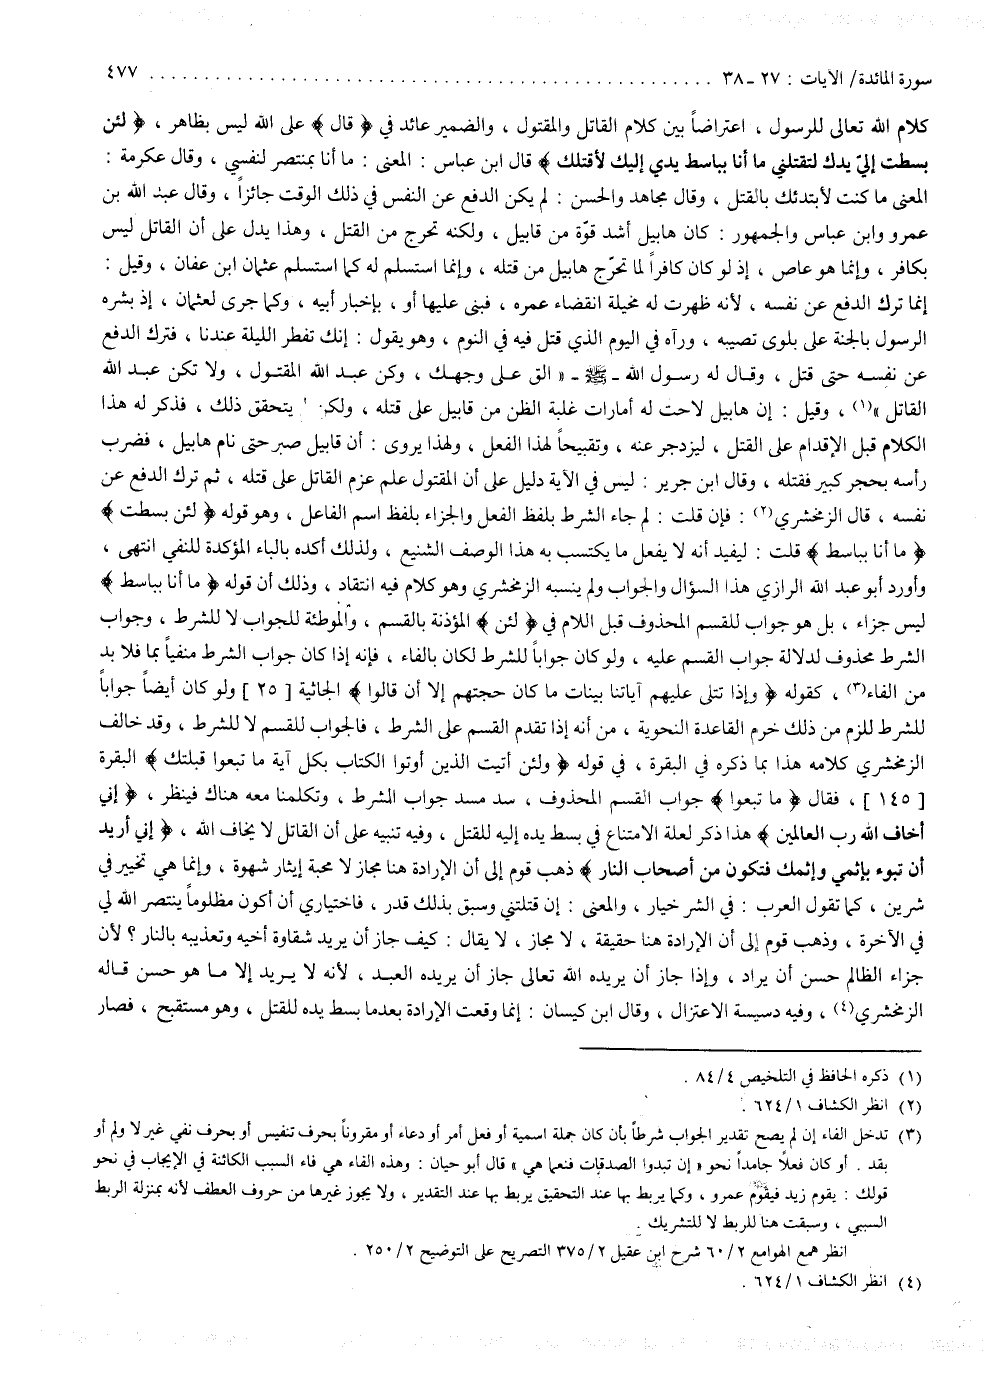 سورة المائدة/ الآيات : ٢٧ ـ ٣٨ . . . . . . . . . . . . . . . . . . . . . . . . . . . . . . . . . . . . . . . . ٤٧٧
كلام الله تعالى للرسول ، اعتراضاً بين كلام القاتل والمقتول ، والضمير عائد في ﴿ قال ﴾ على الله ليس بظاهر ، ﴿ لئن
بسطت إليّ يدك لتقتلني ما أنا بباسط يدي إليك لأقتلك ﴾ قال ابن عباس : المعنى : ما أنا بمنتصر لنفسي ، وقال عكرمة :
المعنى ما كنت لأبتدئك بالقتل ، وقال مجاهد والحسن : لم يكن الدفع عن النفس في ذلك الوقت جائزاً ، وقال عبد الله بن
عمرو وابن عباس والجمهور : كان هابيل أشد قوّة من قابيل ، ولكنه تحرج من القتل ، وهذا يدل على أن القاتل ليس
بكافر ، وإنما هو عاص ، إذ لو كان كافراً لما تحرّج هابيل من قتله ، وإنما استسلم له كما استسلم عثمان ابن عفان ، وقيل :
إنما ترك الدفع عن نفسه ، لأنه ظهرت له مخيلة انقضاء عمره ، فبنى عليها أو ، بإخبار أبيه ، وكما جرى لعثمان ، إذ بشره
الرسول بالجنة على بلوى تصيبه ، ورآه في اليوم الذي قتل فيه في النوم ، وهو يقول : إنك تفطر الليلة عندنا ، فترك الدفع
عن نفسه حتى قتل ، وقال له رسول الله ـ ﷺ ـ « الق على وجهك ، وكن عبد الله المقتول ، ولا تكن عبد الله
القاتل »(١) ، وقيل : إن هابيل لاحت له أمارات غلبة الظن من قابيل على قتله ، ولكن يتحقق ذلك ، فذكر له هذا
الكلام قبل الإقدام على القتل ، ليزدجر عنه ، وتقبيحاً لهذا الفعل ، ولهذا يروى : أن قابيل صبر حتى نام هابيل ، فضرب
رأسه بحجر كبير فقتله ، وقال ابن جرير : ليس في الآية دليل على أن المقتول علم عزم القاتل على قتله ، ثم ترك الدفع عن
نفسه ، قال الزمخشري(٢) : فإن قلت : لم جاء الشرط بلفظ الفعل والجزاء بلفظ اسم الفاعل ، وهو قوله ﴿ لئن بسطت ﴾
﴿ ما أنا بباسط ﴾ قلت : ليفيد أنه لا يفعل ما يكتسب به هذا الوصف الشنيع ، ولذلك أكده بالباء المؤكدة للنفي انتهى ،
وأورد أبو عبد الله الرازي هذا السؤال والجواب ولم ينسبه الزمخشري وهو كلام فيه انتقاد ، وذلك أن قوله ﴿ ما أنا بباسط ﴾
ليس جزاء ، بل هو جواب للقسم المحذوف قبل اللام في ﴿ لئن ﴾ المؤذنة بالقسم ، والموطئة للجواب لا للشرط ، وجواب
الشرط محذوف لدلالة جواب القسم عليه ، ولو كان جواباً للشرط لكان بالفاء ، فإنه إذا كان جواب الشرط منفياً بما فلا بد
من الفاء(٣) ، كقوله ﴿ وإذا تتلى عليهم آياتنا بينات ما كان حجتهم إلا أن قالوا ﴾ الجاثية [ ٢٥ ] ولو كان أيضاً جواباً
للشرط للزم من ذلك خرم القاعدة النحوية ، من أنه إذا تقدم القسم على الشرط ، فالجواب للقسم لا للشرط ، وقد خالف
الزمخشري كلامه هذا بما ذكره في البقرة ، في قوله ﴿ ولئن أتيت الذين أوتوا الكتاب بكل آية ما تبعوا قبلتك ﴾ البقرة
[ ١٤٥ ] ، فقال ﴿ ما تبعوا ﴾ جواب القسم المحذوف ، سد مسد جواب الشرط ، وتكلمنا معه هناك فينظر ، ﴿ إني
أخاف الله رب العالمين ﴾ هذا ذكر لعلة الامتناع في بسط يده إليه للقتل ، وفيه تنبيه على أن القاتل لا يخاف الله ، ﴿ إني أريد
أن تبوء بإثمي وإثمك فتكون من أصحاب النار ﴾ ذهب قوم إلى أن الإرادة هنا مجاز لا محبة إيثار شهوة ، وإنما هي تخيير في
شرين ، كما تقول العرب : في الشر خيار ، والمعنى : إن قتلتني وسبق بذلك قدر ، فاختياري أن أكون مظلوماً ينتصر الله لي
في الآخرة ، وذهب قوم إلى أن الإرادة هنا حقيقة ، لا مجاز ، لا يقال : كيف جاز أن يريد شقاوة أخيه وتعذيبه بالنار ؟ لأن
جزاء الظالم حسن أن يراد ، وإذا جاز أن يريده الله تعالى جاز أن يريده العبد ، لأنه لا يريد إلا ما هو حسن قاله
الزمخشري(٤) ، وفيه دسيسة الاعتزال ، وقال ابن كيسان : إنما وقعت الإرادة بعدما بسط يده للقتل ، وهو مستقبح ، فصار
(١) ذكره الحافظ في التلخيص ٨٤/٤ .
(٢) انظر الكشاف ٦٢٤/١ .
(٣) تدخل الفاء إن لم يصح تقدير الجواب شرطاً بأن كان جملة اسمية أو فعل أمر أو دعاء أو مقروناً بحرف تنفيس أو بحرف نفي غير لا ولم أو
بقد . أو كان فعلاً جامداً نحو « إن تبدوا الصدقات فنعما هي » قال أبو حيان : وهذه الفاء هي فاء السبب الكائنة في الإيجاب في نحو
قولك : يقوم زيد فيقوم عمرو ، وكما يربط بها عند التحقيق يربط بها عند التقدير ، ولا يجوز غيرها من حروف العطف لأنه بمنزلة الربط
السببي ، وسبقت هنا للربط لا للتشريك .
انظر همع الهوامع ٦٠/٢ شرح ابن عقيل ٣٧٥/٢ التصريح على التوضيح ٢٥٠/٢ .
(٤) انظر الكشاف ٦٢٤/١ .